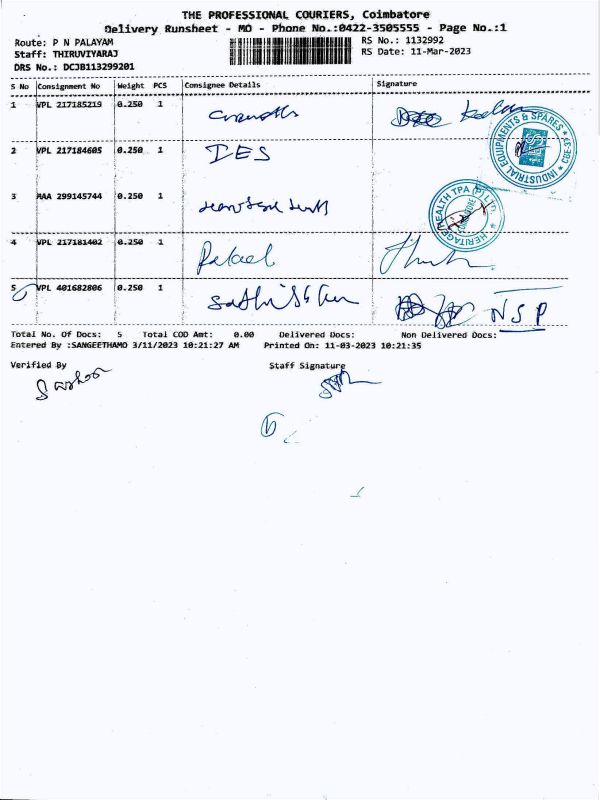 THE PROFESSIONAL COURIERS, Coimbatore
Delivery Runsheet - MO - Phone No.:0422-3505555 - Page No.:1
Route: P N PALAYAM
Staff: THIRUVIYARAJ
DRS No.: DCJB113299201
RS No.: 1132992
RS Date: 11-Mar-2023
S No Consignment No Weight PCS Consignee Details Signature
1 VPL 217185219 0.250 1
INDUSTRIAL EQUIPMENTS & SPARES * CBE-37 *
2 VPL 217184605 0.250 1 IES
3 MAA 299145744 0.250 1
HERITAGE HEALTH TPA (P) LTD. * COIMBATORE
4 VPL 217181402 0.250 1
5 VPL 401682806 0.250 1 NSP
Total No. Of Docs: 5 Total COD Amt: 0.00 Delivered Docs: Non Delivered Docs:
Entered By :SANGEETHAMO 3/11/2023 10:21:27 AM Printed On: 11-03-2023 10:21:35
Verified By Staff Signature